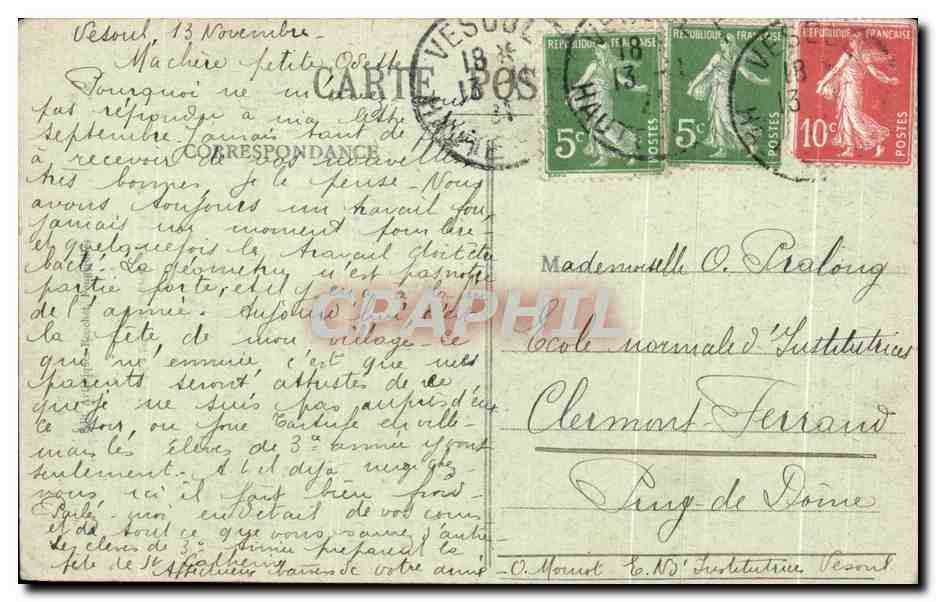 Vesoul, 13 Novembre
Ma chère petite Odette
CARTE POS
Pourquoi ne m'avez
pas répondu à ma lettre
septembre. J'aimais tant de
à recevoir de vos nouvelles
CORRESPONDANCE
très bonnes, je le pense - Nous
avons toujours un travail fou,
jamais un moment pour lire
et quelquefois le travail doit être
La géométrie n'est pas notre
partie forte, et il y en a
de l'année. Aujourd'hui c'est
la fête de mon village. Ce
qui m'ennuie, c'est que mes
parents seront attristés de ce
que je ne suis pas auprès d'eux
Ce soir, on joue Tartufe en ville
mais les élèves de 3e année y vont
seulement. A-t-il déjà neigé chez
vous ici il fait bien froid
Parlez-moi en détail de vos cours
et de tout ce que vous
Les élèves de 3e année préparent la
fête de Ste Catherine
Affectueux baisers de votre amie
VESOUL
18
13
HAUTE
REPUBLIQUE FRANÇAISE
5c
POSTES
REPUBLIQUE FRANÇAISE
5c
POSTES
REPUBLIQUE FRANÇAISE
10c
POSTES
CPAPHIL
Mademoiselle O. Pralong
Ecole normale d'Institutrices
Clermont-Ferrand
Puy-de Dôme
O. Moniot E. N. d'Institutrices Vesoul